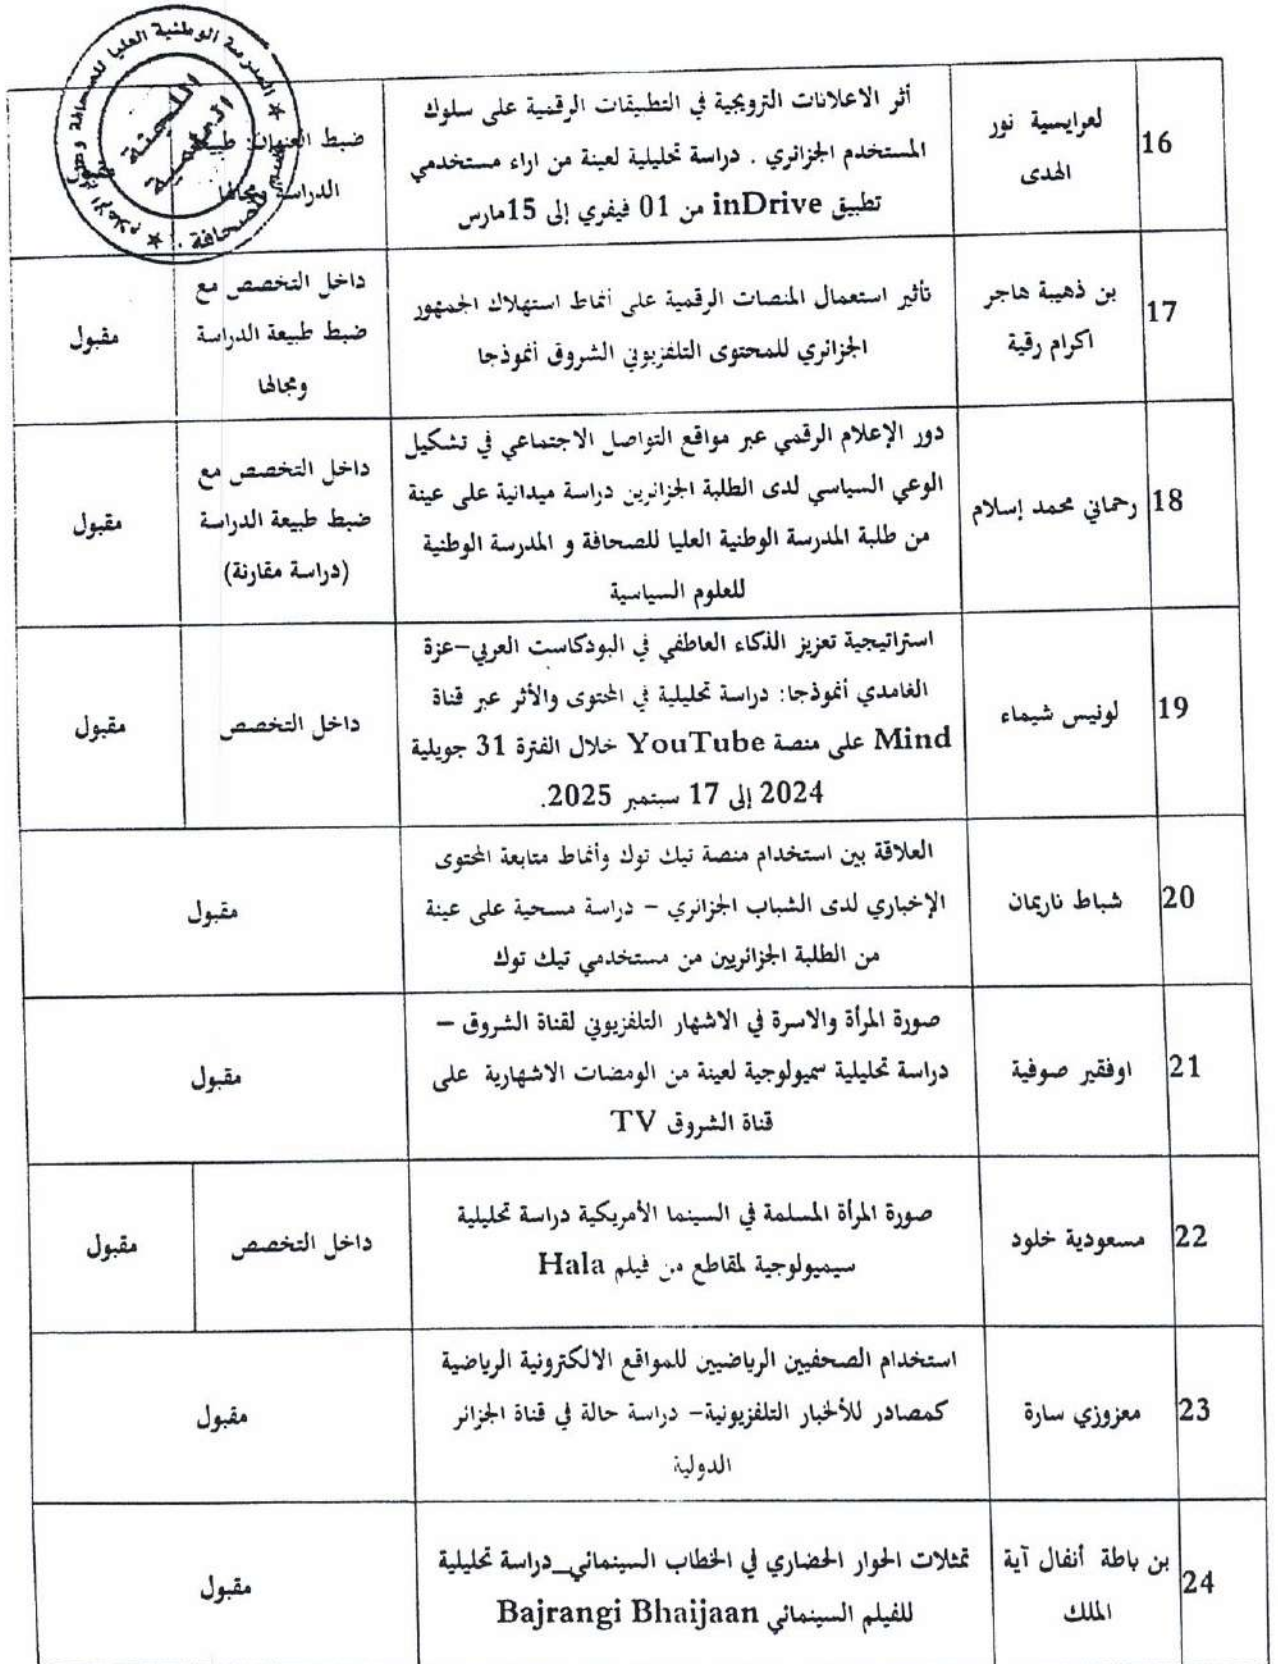 المدرسة الوطنية العليا للصحافة وعلوم الإعلام
اللجنة
العلمية
للصحافة
16
لعرايسية نور
الهدى
أثر الاعلانات الترويجية في التطبيقات الرقمية على سلوك
المستخدم الجزائري . دراسة تحليلية لعينة من اراء مستخدمي
تطبيق inDrive من 01 فيفري إلى 15مارس
ضبط العنوان: طبيعة
الدراسة ومجالها
17
بن ذهيبة هاجر
اكرام رقية
تأثير استعمال المنصات الرقمية على أنماط استهلاك الجمهور
الجزائري للمحتوى التلفزيوني الشروق أنموذجا
داخل التخصص مع
ضبط طبيعة الدراسة
ومجالها
مقبول
18
رحماني محمد إسلام
دور الإعلام الرقمي عبر مواقع التواصل الاجتماعي في تشكيل
الوعي السياسي لدى الطلبة الجزائرين دراسة ميدانية على عينة
من طلبة المدرسة الوطنية العليا للصحافة و المدرسة الوطنية
للعلوم السياسية
داخل التخصص مع
ضبط طبيعة الدراسة
(دراسة مقارنة)
مقبول
19
لونيس شيماء
استراتيجية تعزيز الذكاء العاطفي في البودكاست العربي–عزة
الغامدي أنموذجا: دراسة تحليلية في المحتوى والأثر عبر قناة
Mind على منصة YouTube خلال الفترة 31 جويلية
2024 إلى 17 سبتمبر 2025.
داخل التخصص
مقبول
20
شباط ناريمان
العلاقة بين استخدام منصة تيك توك وأنماط متابعة المحتوى
الإخباري لدى الشباب الجزائري – دراسة مسحية على عينة
من الطلبة الجزائريين من مستخدمي تيك توك
مقبول
21
اوفقير صوفية
صورة المرأة والاسرة في الاشهار التلفزيوني لقناة الشروق –
دراسة تحليلية سميولوجية لعينة من الومضات الاشهارية على
قناة الشروق TV
مقبول
22
مسعودية خلود
صورة المرأة المسلمة في السينما الأمريكية دراسة تحليلية
سيميولوجية لمقاطع من فيلم Hala
داخل التخصص
مقبول
23
معزوزي سارة
استخدام الصحفيين الرياضيين للمواقع الالكترونية الرياضية
كمصادر للألخبار التلفزيونية– دراسة حالة في قناة الجزائر
الدولية
مقبول
24
بن باطة أنفال آية
الملك
تمثلات الحوار الحضاري في الخطاب السينمائي_دراسة تحليلية
للفيلم السينمائي Bajrangi Bhaijaan
مقبول